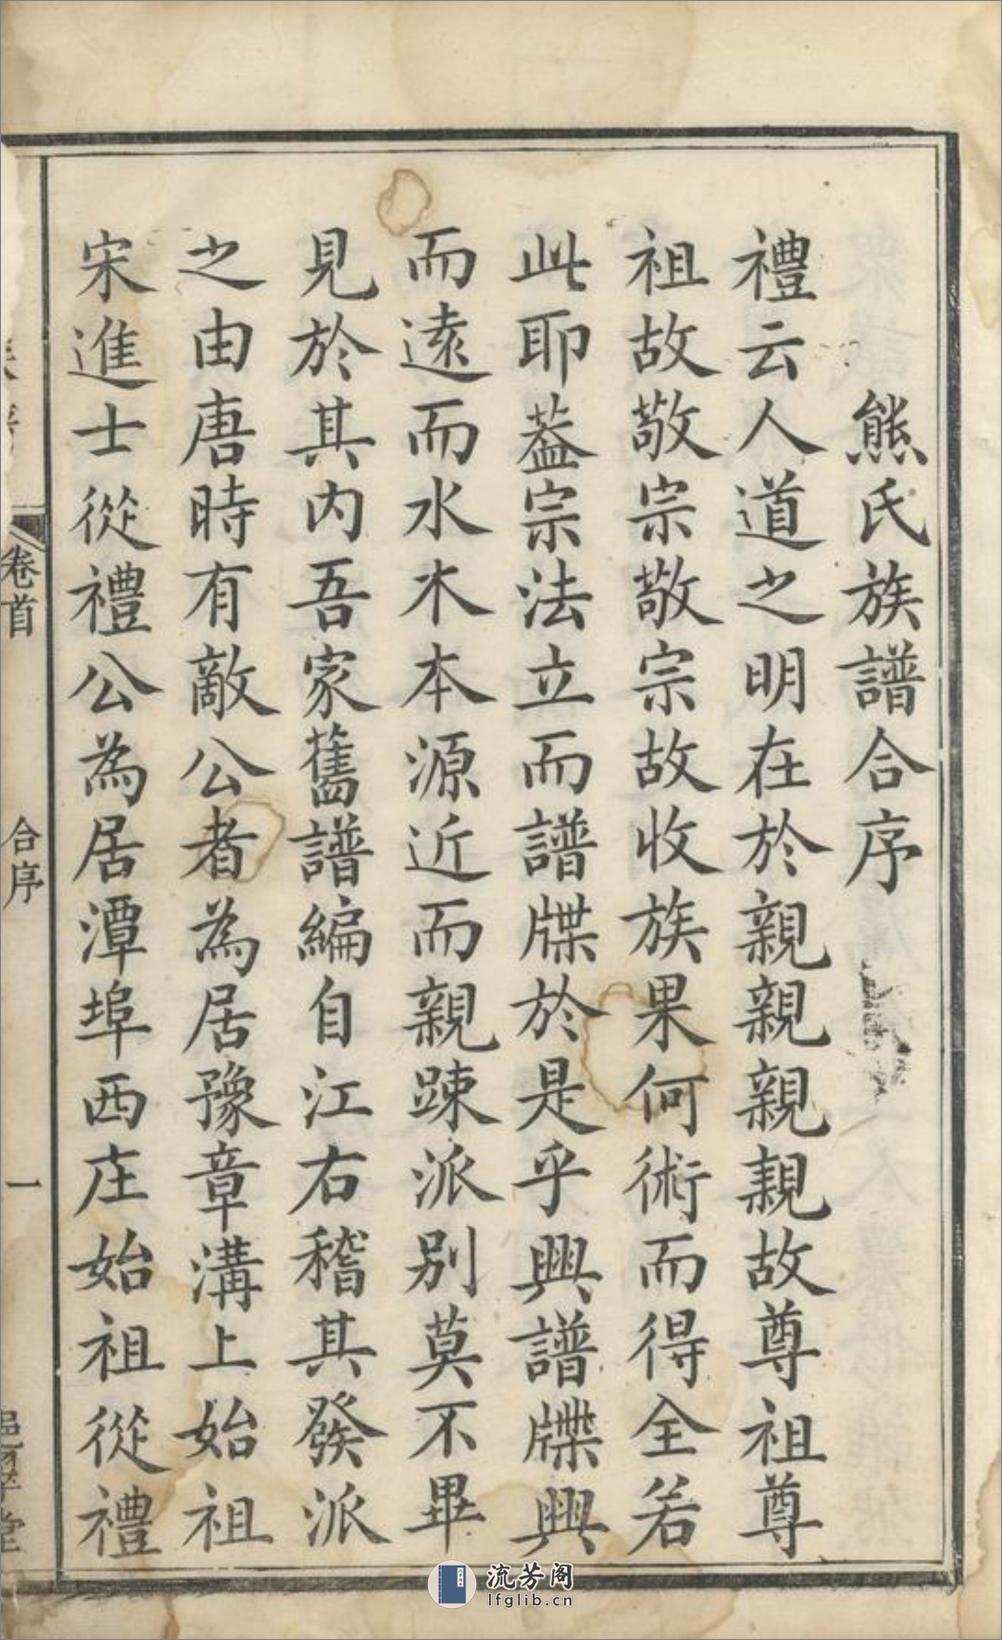 熊氏族譜合序
禮云人道之明在於親親親親故尊祖尊
祖故敬宗敬宗故收族果何術而得全若
此耶葢宗法立而譜牒於是乎興譜牒興
而遠而水木本源近而親踈派别莫不畢
見於其内吾家舊譜編自江右稽其發派
之由唐時有敵公者為居豫章溝上始祖
宋進士從禮公為居潭埠西庄始祖從禮
卷首
合序
一
堂
流芳阁
lfglib.cn